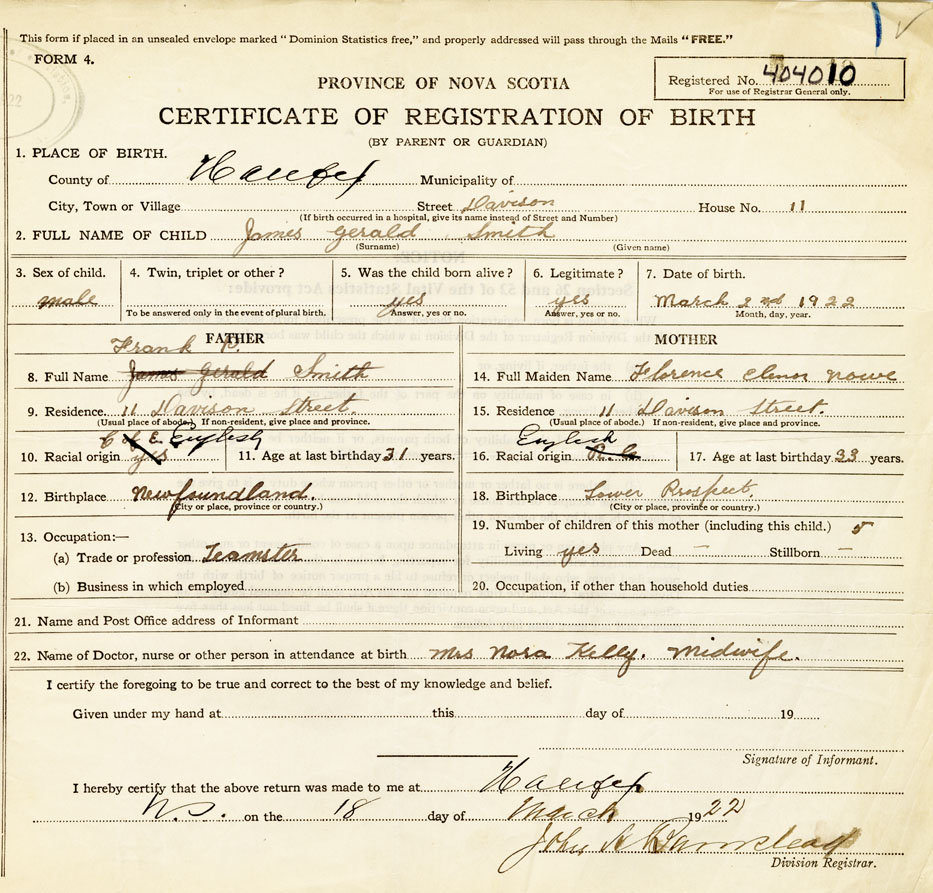 This form if placed in an unsealed envelope marked "Dominion Statistics free," and properly addressed will pass through the Mails "FREE."
FORM 4.
Registered No. 404010
For use of Registrar General only.
PROVINCE OF NOVA SCOTIA
CERTIFICATE OF REGISTRATION OF BIRTH
(BY PARENT OR GUARDIAN)
1. PLACE OF BIRTH.
County of Halifax Municipality of
City, Town or Village Street Davison House No. 11
(If birth occurred in a hospital, give its name instead of Street and Number)
2. FULL NAME OF CHILD James Gerald Smith
(Surname) (Given name)
3. Sex of child. 4. Twin, triplet or other? 5. Was the child born alive? 6. Legitimate? 7. Date of birth.
male yes yes March 2nd 1922
To be answered only in the event of plural birth. Answer, yes or no. Answer, yes or no. Month, day, year.
FATHER
Frank
8. Full Name James Gerald Smith
9. Residence 11 Davison Street.
(Usual place of abode.) If non-resident, give place and province.
C of E. English
10. Racial origin yes 11. Age at last birthday 31 years.
12. Birthplace Newfoundland.
(City or place, province or country.)
13. Occupation:—
(a) Trade or profession Teamster
(b) Business in which employed
MOTHER
14. Full Maiden Name Florence Elenor Nowe
15. Residence 11 Davison Street.
(Usual place of abode.) If non-resident, give place and province.
English
16. Racial origin R.C 17. Age at last birthday 33 years.
18. Birthplace Lower Prospect.
(City or place, province or country.)
19. Number of children of this mother (including this child.) 5
Living yes Dead — Stillborn —
20. Occupation, if other than household duties
21. Name and Post Office address of Informant
22. Name of Doctor, nurse or other person in attendance at birth Mrs Nora Kelly. Midwife.
I certify the foregoing to be true and correct to the best of my knowledge and belief.
Given under my hand at this day of 19
Signature of Informant.
I hereby certify that the above return was made to me at Halifax
N.S. on the 18 day of March 1922
John A Barnstead
Division Registrar.